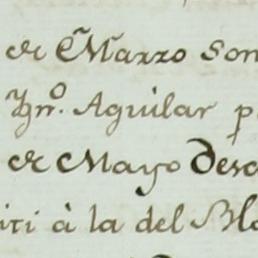 de Marzo son
Ygn.º Aguilar p
de Mayo Desc
iti à la del Bla